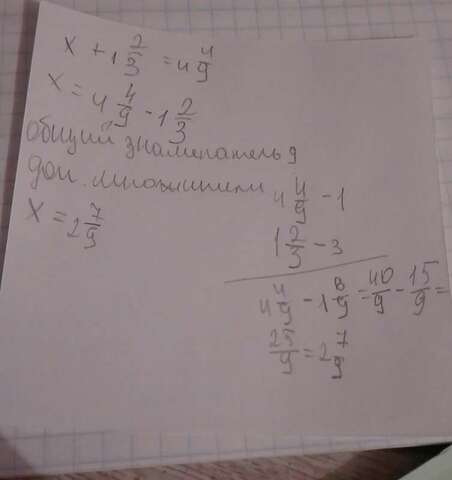 x + 1 2/3 = 4 4/9
x = 4 4/9 - 1 2/3
общий знаменатель 9
доп. множители
4 4/9 - 1
1 2/3 - 3
x = 2 7/9
4 4/9 - 1 6/9 = 40/9 - 15/9 =
25/9 = 2 7/9